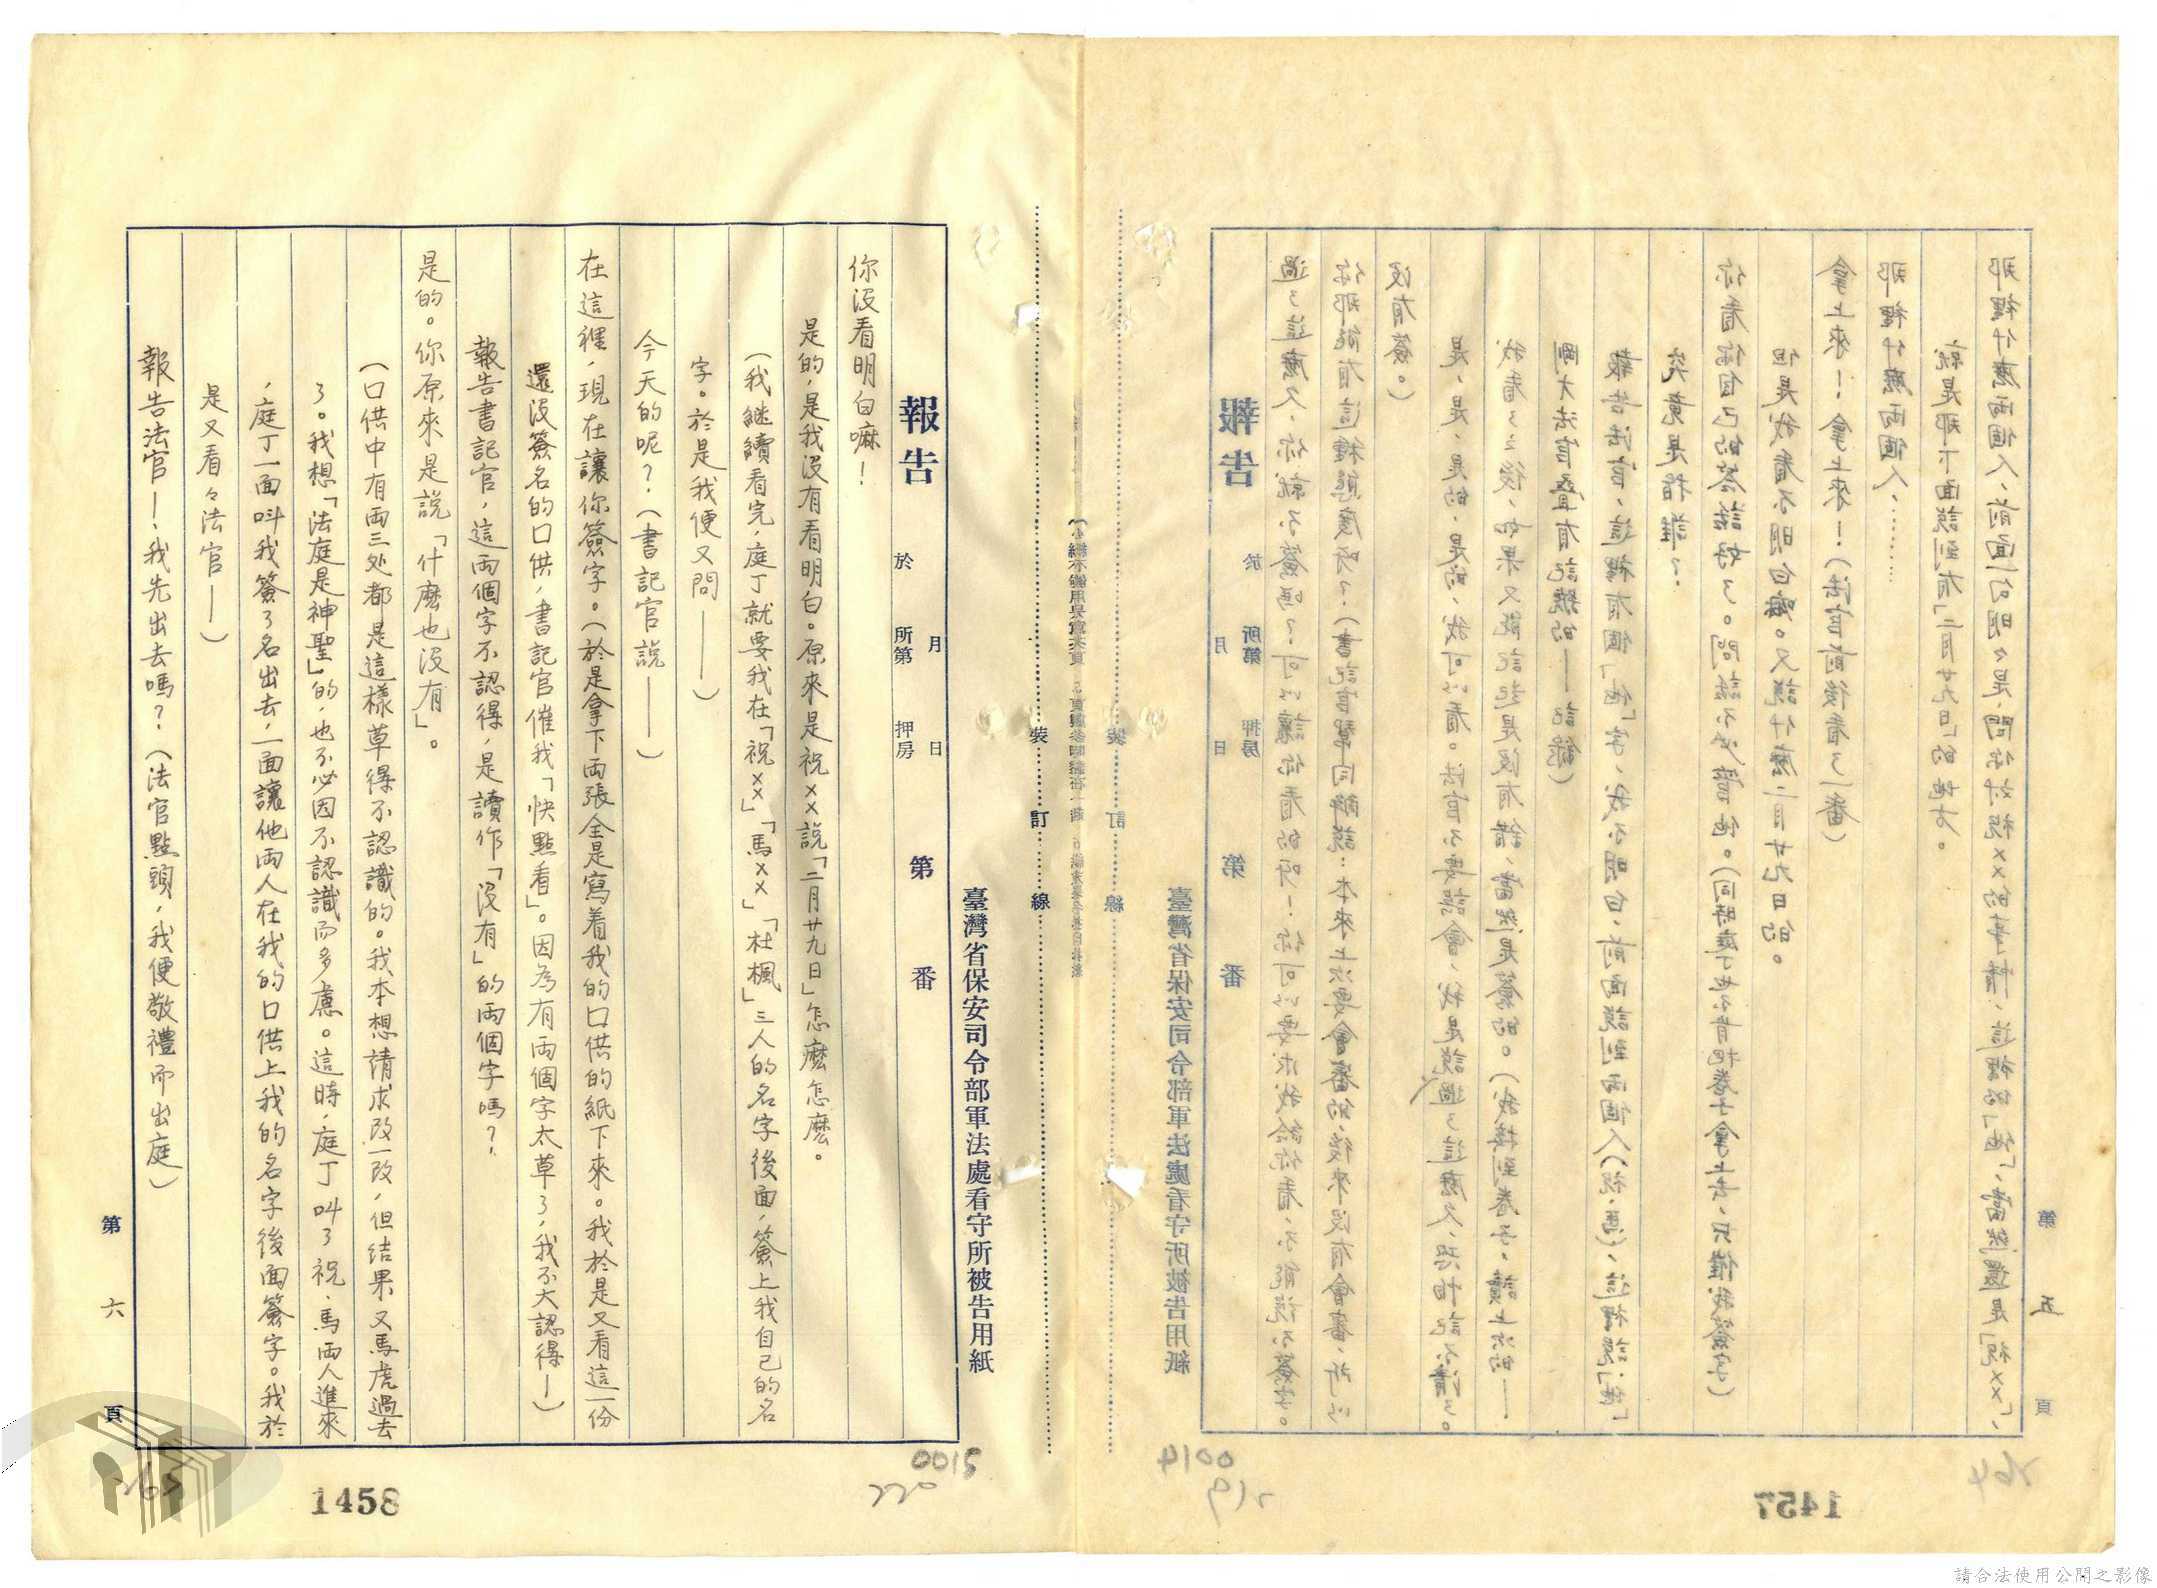 臺灣省保安司令部軍法處看守所被告用紙
報告 第 番
於 所第 押房
月 日
過了這麼久，你就不簽嗎？可以讓你看的呀！你可以要求我給你看，不能說不簽字。
你那能有這種態度呀？（書記官幫同解說：本來上次要會審的，後來沒有會審，所以
沒有簽。）
是，是，是的，是的，我可以看。法官不要誤會，我是說過了這麼久，恐怕記不清了。
我看了之後，如果又能記起是沒有錯，當然是簽的。（我接到卷子，讀上次的——
剛才法官疊有記號的——記錄）
報告法官，這裡有個「他」字，我不明白，前面說到兩個人（祝、馬），這裡說「他」
究竟是指誰？
你看你自己的答話好了。問話不必管他。（同時庭丁也不肯把卷子拿上去，只催我簽字）
但是我看不明白嘛。又說什麼二月廿九日的。
拿上來！拿上來！（法官前後看了一番）
那裡什麼兩個人，……
就是那下面說到有「二月廿九日」的地方。
那裡什麼兩個人，前面一句明々是，問你对祝××的事情，這裡的「他」，當然還是「祝××」，
第 五 頁
264
0014
219
1457
裝 訂 線
臺灣省保安司令部軍法處看守所被告用紙
報告 第 番
於 所第 押房
月 日
你沒看明白嘛！
是的，是我沒有看明白。原來是祝××說「二月廿九日」怎麼怎麼。
（我継續看完，庭丁就要我在「祝××」「馬××」「杜楓」三人的名字後面，簽上我自己的名
字。於是我便又問——）
今天的呢？（書記官說——）
在這裡，現在讓你簽字。（於是拿下兩張全是寫着我的口供的紙下來。我於是又看這一份
還沒簽名的口供，書記官催我「快點看」。因為有兩個字太草了，我不大認得—）
報告書記官，這兩個字不認得，是讀作「沒有」的兩個字嗎？
是的。你原來是說「什麼也沒有」。
（口供中有兩三处都是這樣草得不認識的。我本想請求改一改，但結果又馬虎過去
了。我想「法庭是神聖」的，也不必因不認識而多慮。這時，庭丁叫了祝、馬兩人進來
，庭丁一面叫我簽了名出去，一面讓他兩人在我的口供上我的名字後面簽字。我於
是又看々法官——）
報告法官——，我先出去嗎？（法官點頭，我便敬禮而出庭）
第 六 頁
265
0015
1458
請合法使用公開之影像